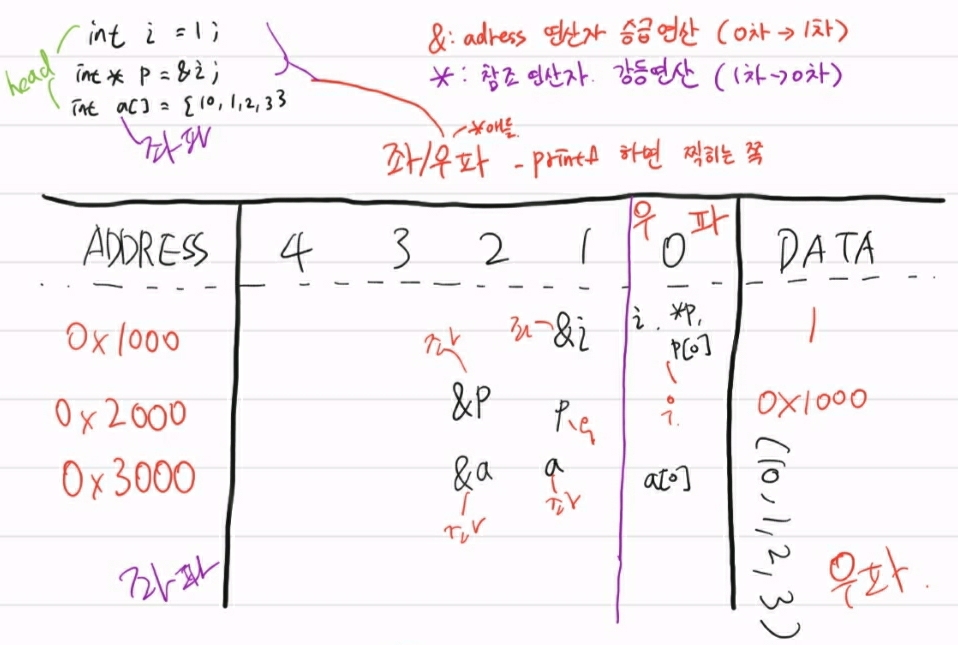 int i = 1;
int* p = &i;
int a[] = {10, 1, 2, 3}
head
좌파
&: adress 연산자 승급연산 (0차→1차)
*: 참조 연산자. 강등연산 (1차→0차)
*애들
좌/우파 - printf 하면 찍히는 쪽
우 파
ADDRESS 4 3 2 1 0 DATA
0x1000 좌 &i i. *p, p[0] 1
좌
0x2000 &p p 우 우 0x1000
0x3000 &a a a[0] (10, 1, 2, 3)
좌 좌
좌파 우파.